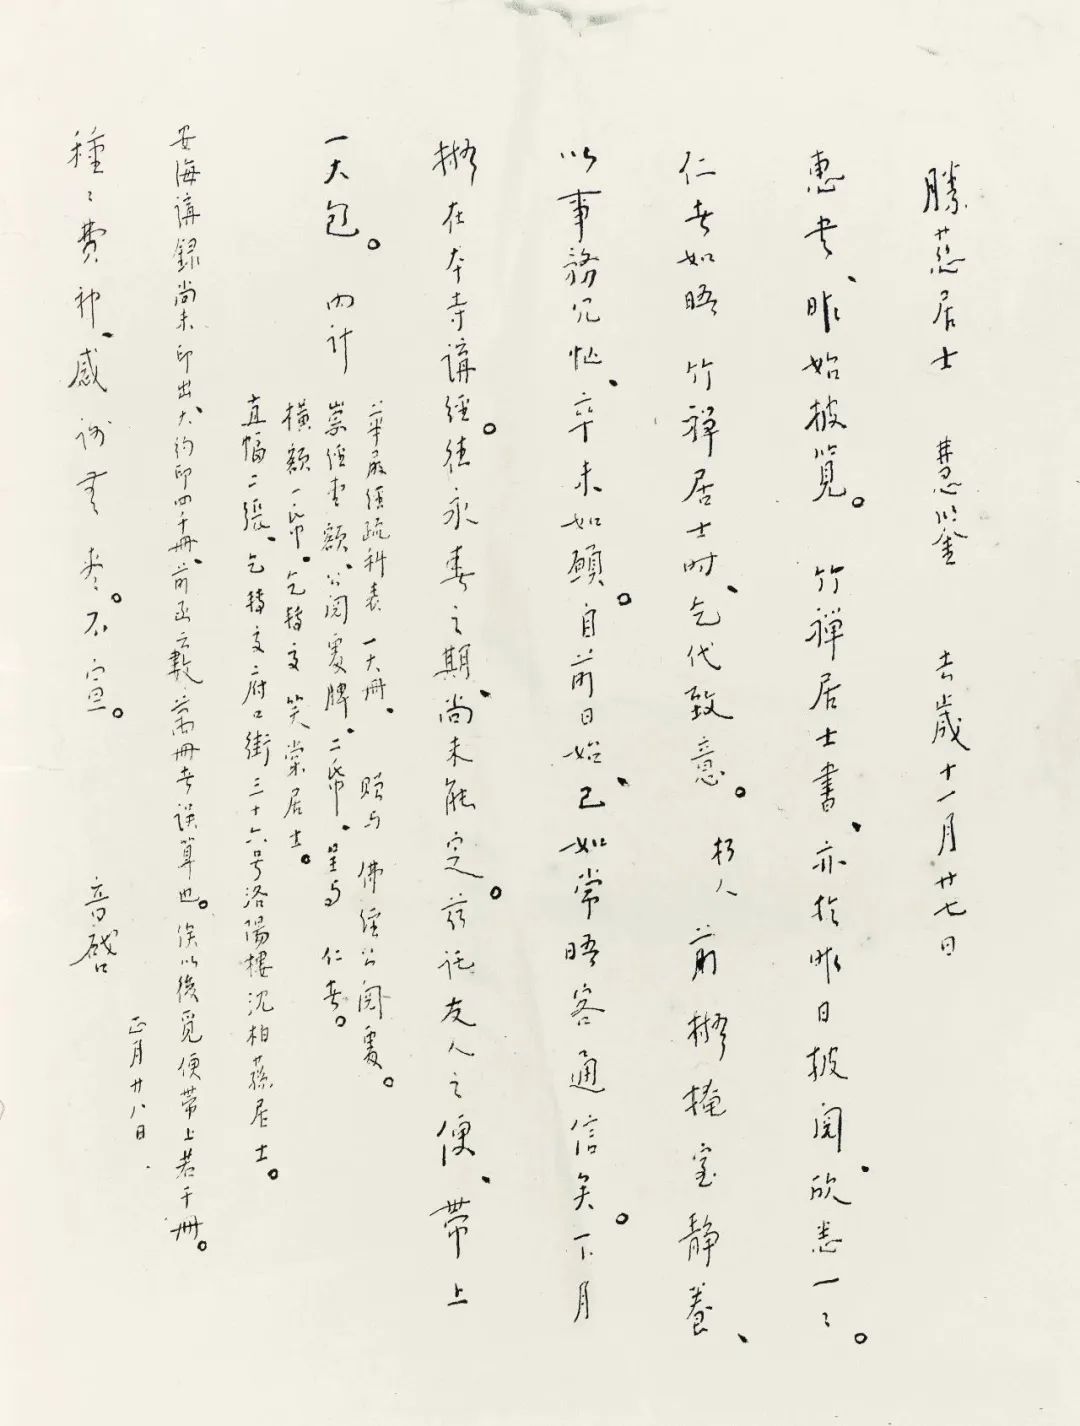 勝慈居士 慧鉴 去歲十一月廿七日
惠书、昨始披览。竹禅居士書、亦於昨日披阅、欣悉一々。
仁者如晤 竹禅居士时、乞代致意。朽人 前擬掩室静養、
以事務冗忙、卒未如願。自前日始、已如常晤客通信矣。下月
擬在本寺講經。往永春之期、尚未能定。兹託友人之便、帶上
一大包。内计
华嚴經疏科表 一大册、赠与 佛經公阅處。
崇經書額、公阅處牌、二帋、呈与 仁者。
橫额一帋、乞转交 笑棠居士。
直幅二張、乞转交府口街三十六号洛陽樓沈柏蓀居士。
安海講録尚未印出、大约印四千册、前函云數萬册者誤算也。俟以後覓便帶上若干册。
種々費神、感謝無 盡。不宣。 音啓
正月廿八日